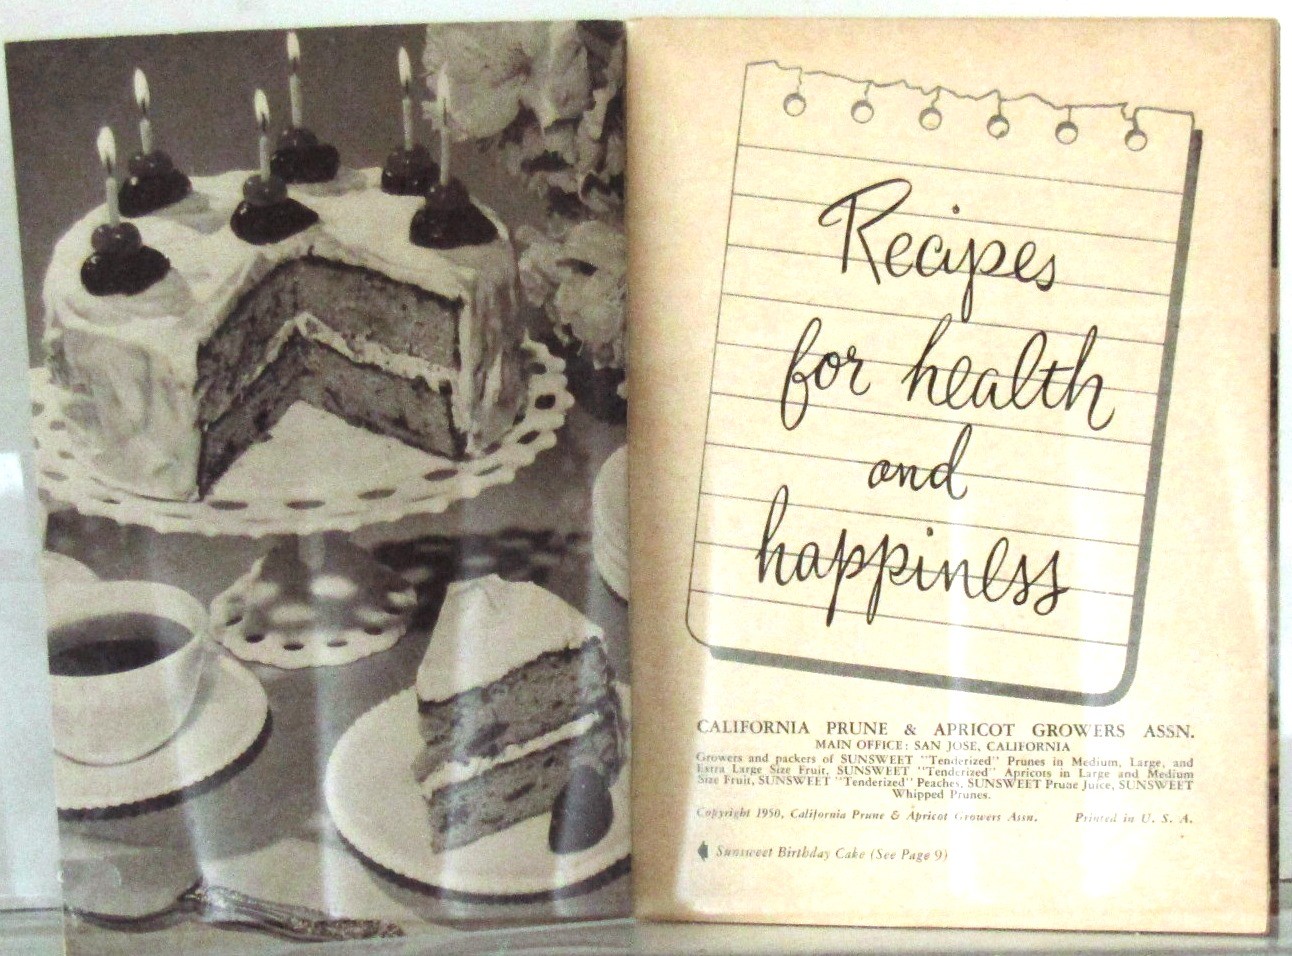 Recipes
for health
and
happiness
CALIFORNIA PRUNE & APRICOT GROWERS ASSN.
MAIN OFFICE: SAN JOSE, CALIFORNIA
Growers and packers of SUNSWEET "Tenderized" Prunes in Medium, Large, and
Extra Large Size Fruit, SUNSWEET "Tenderized" Apricots in Large and Medium
Size Fruit, SUNSWEET "Tenderized" Peaches, SUNSWEET Prune Juice, SUNSWEET
Whipped Prunes.
Copyright 1950, California Prune & Apricot Growers Assn. Printed in U. S. A.
Sunsweet Birthday Cake (See Page 9)